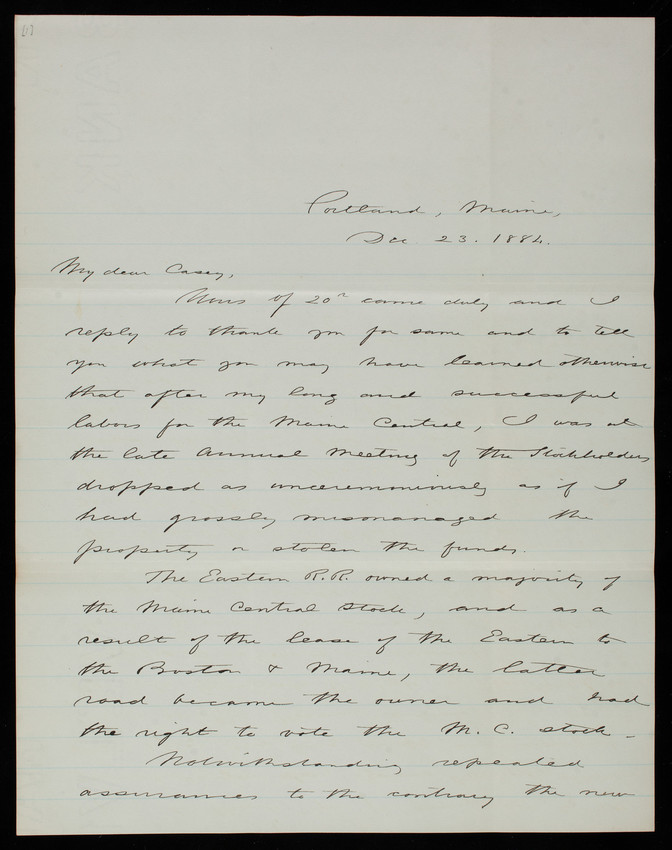 [1]
Portland, Maine,
Dec. 23. 1884.
My dear Casey,
Yours of 20th came duly and I
reply to thank you for same and to tell
you what you may have learned otherwise
that after my long and successful
labors for the Maine Central, I was at
the late Annual Meeting of the Stockholders
dropped as unceremoniously as if I
had grossly mismanaged the
property or stolen the funds.
The Eastern R.R. owned a majority of
the Maine Central stock, and as a
result of the lease of the Eastern to
the Boston & Maine, the latter
road became the owner and had
the right to vote the M. C. stock -
Notwithstanding repeated
assurances to the contrary the new